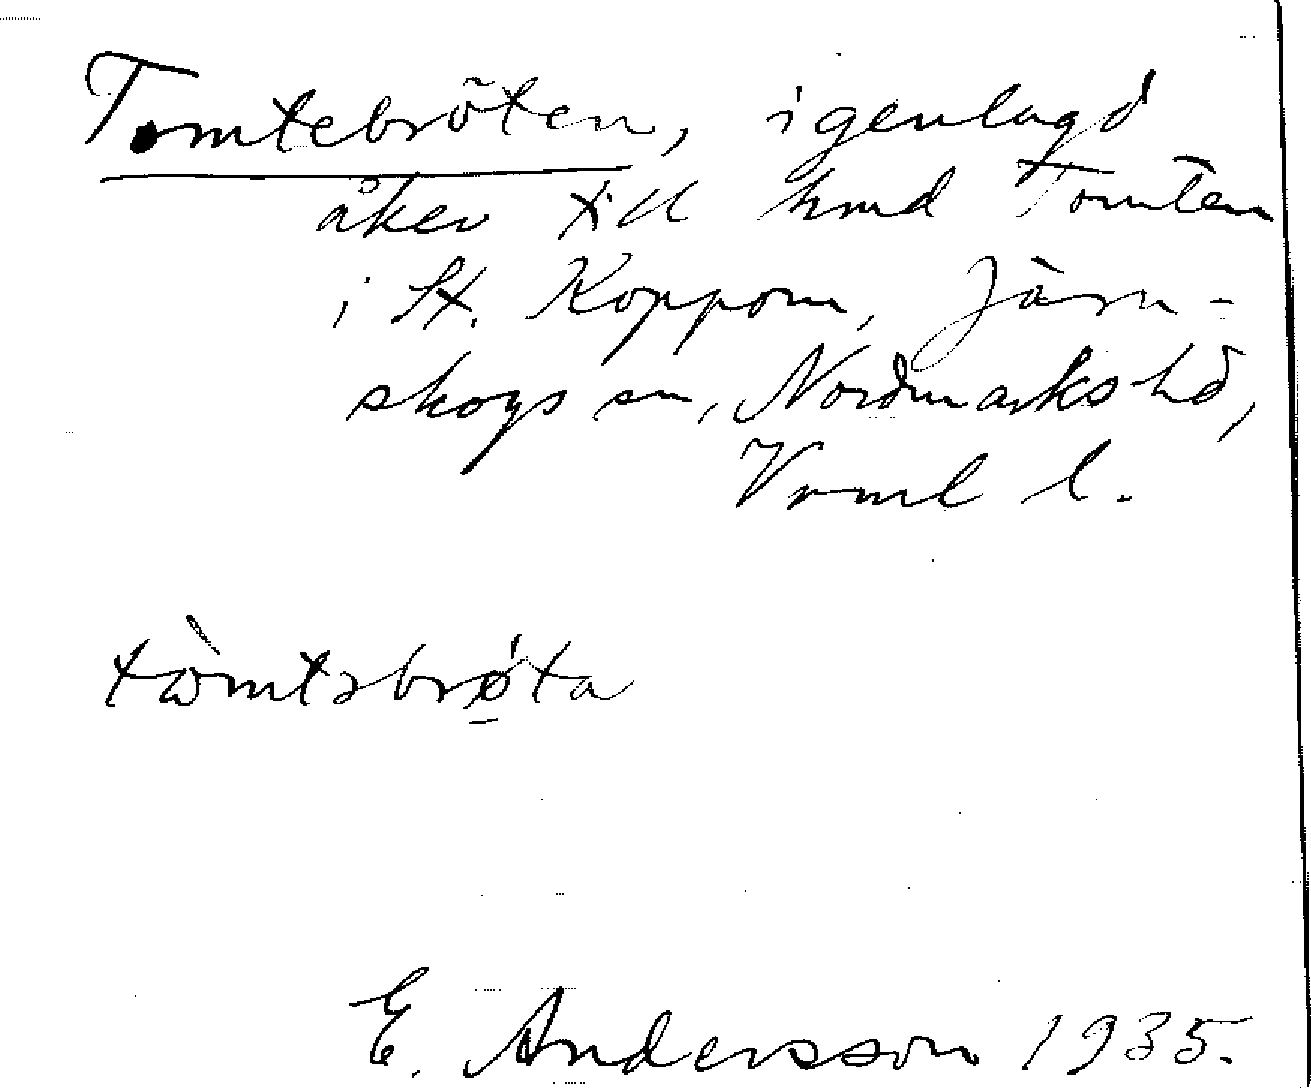 Tomtebröten, igenlagd
åker till hmd Tomten
i St. Koppom, Järn-
skogs sn, Nordmarks hd,
Vrml l.
tòmtəbrǿ̱ta
E. Andersson 1935.